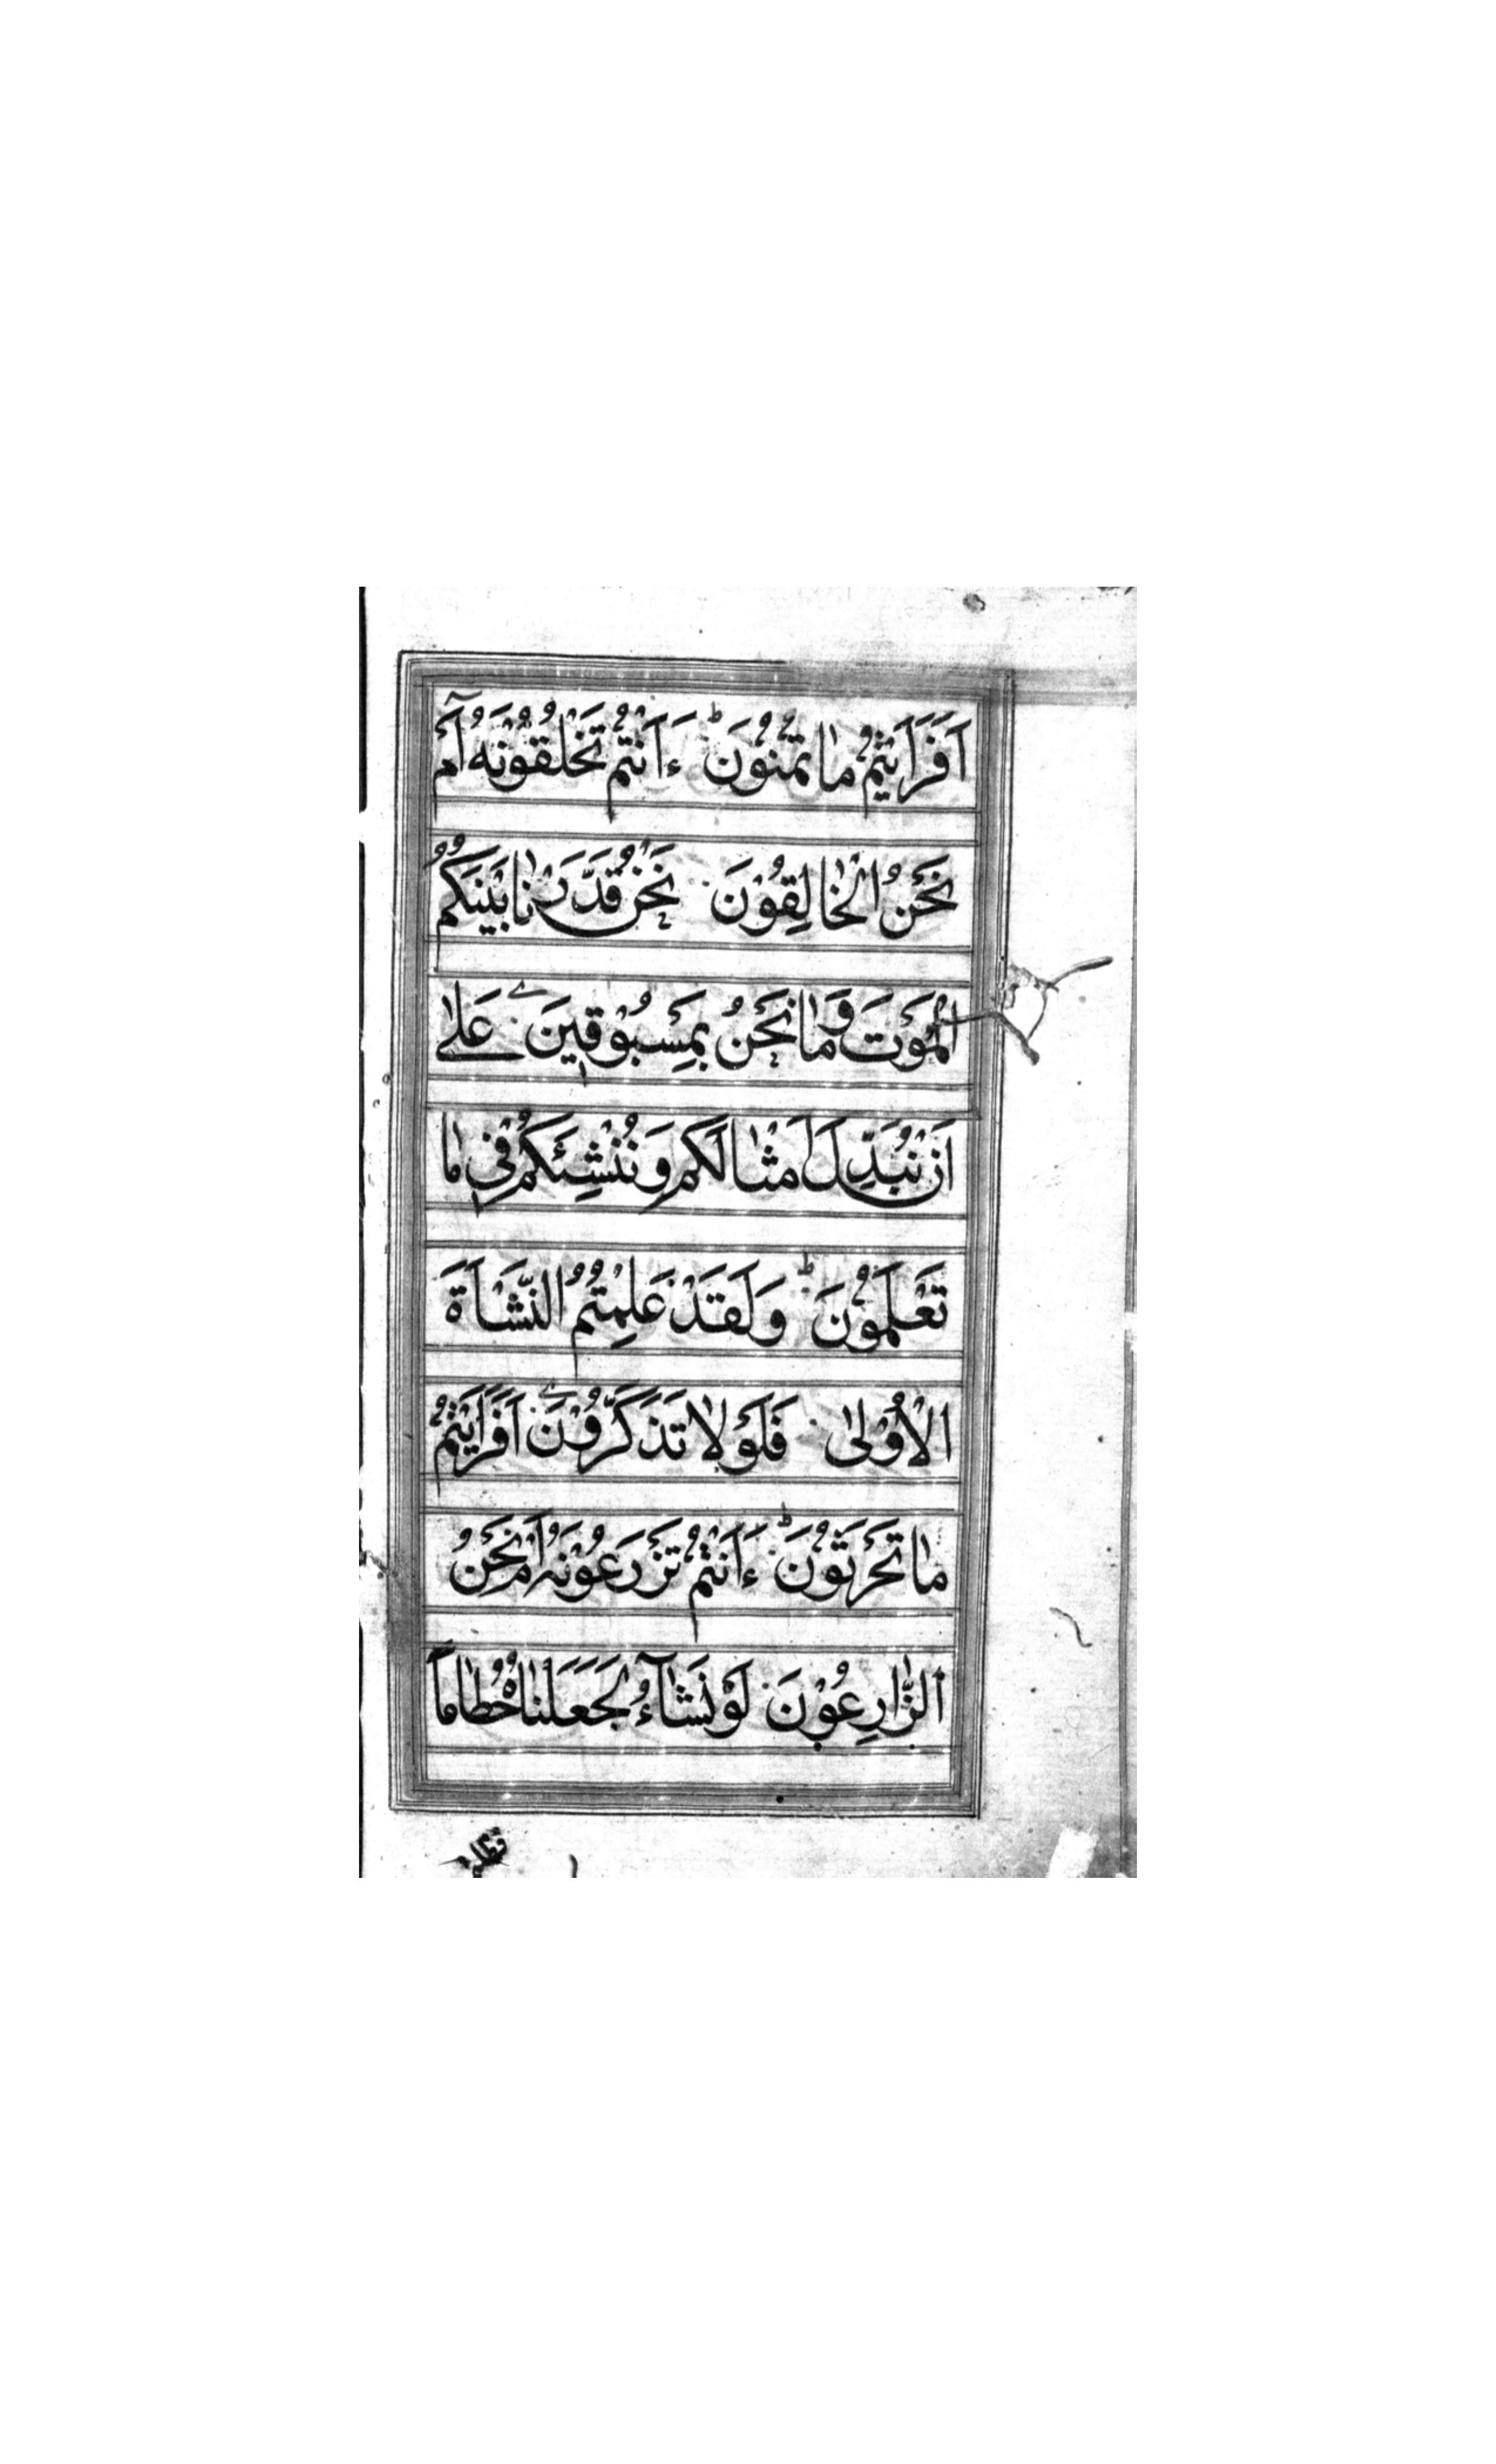 اَفَرَاَيْتُمْ مٰا تُمْنُوْنَ ط ءَاَنْتُمْ تَخْلُقُوْنَهُ اَمْ
نَحْنُ الْخٰالِقُوْنَ نَحْنُ قَدَّرْنٰا بَيْنَكُمُ
الْمَوْتَ وَ مٰا نَحْنُ بِمَسْبُوْقِينَ عَلٰى
اَنْ نُبَدِّلَ اَمْثٰالَكُمْ وَ نُنْشِئَكُمْ فِي مٰا
تَعْلَمُوْنَ ط وَ لَقَدْ عَلِمْتُمُ النَّشْاَةَ
الْاُوْلٰى فَلَوْلٰا تَذَكَّرُوْنَ اَفَرَاَيْتُمْ
مٰا تَحْرَثُوْنَ ط ءَاَنْتُمْ تَزْرَعُوْنَهُ اَمْ نَحْنُ
الزّٰارِعُوْنَ لَوْ نَشٰآءُ لَجَعَلْنٰاهُ حُطٰاماً
فظلتم